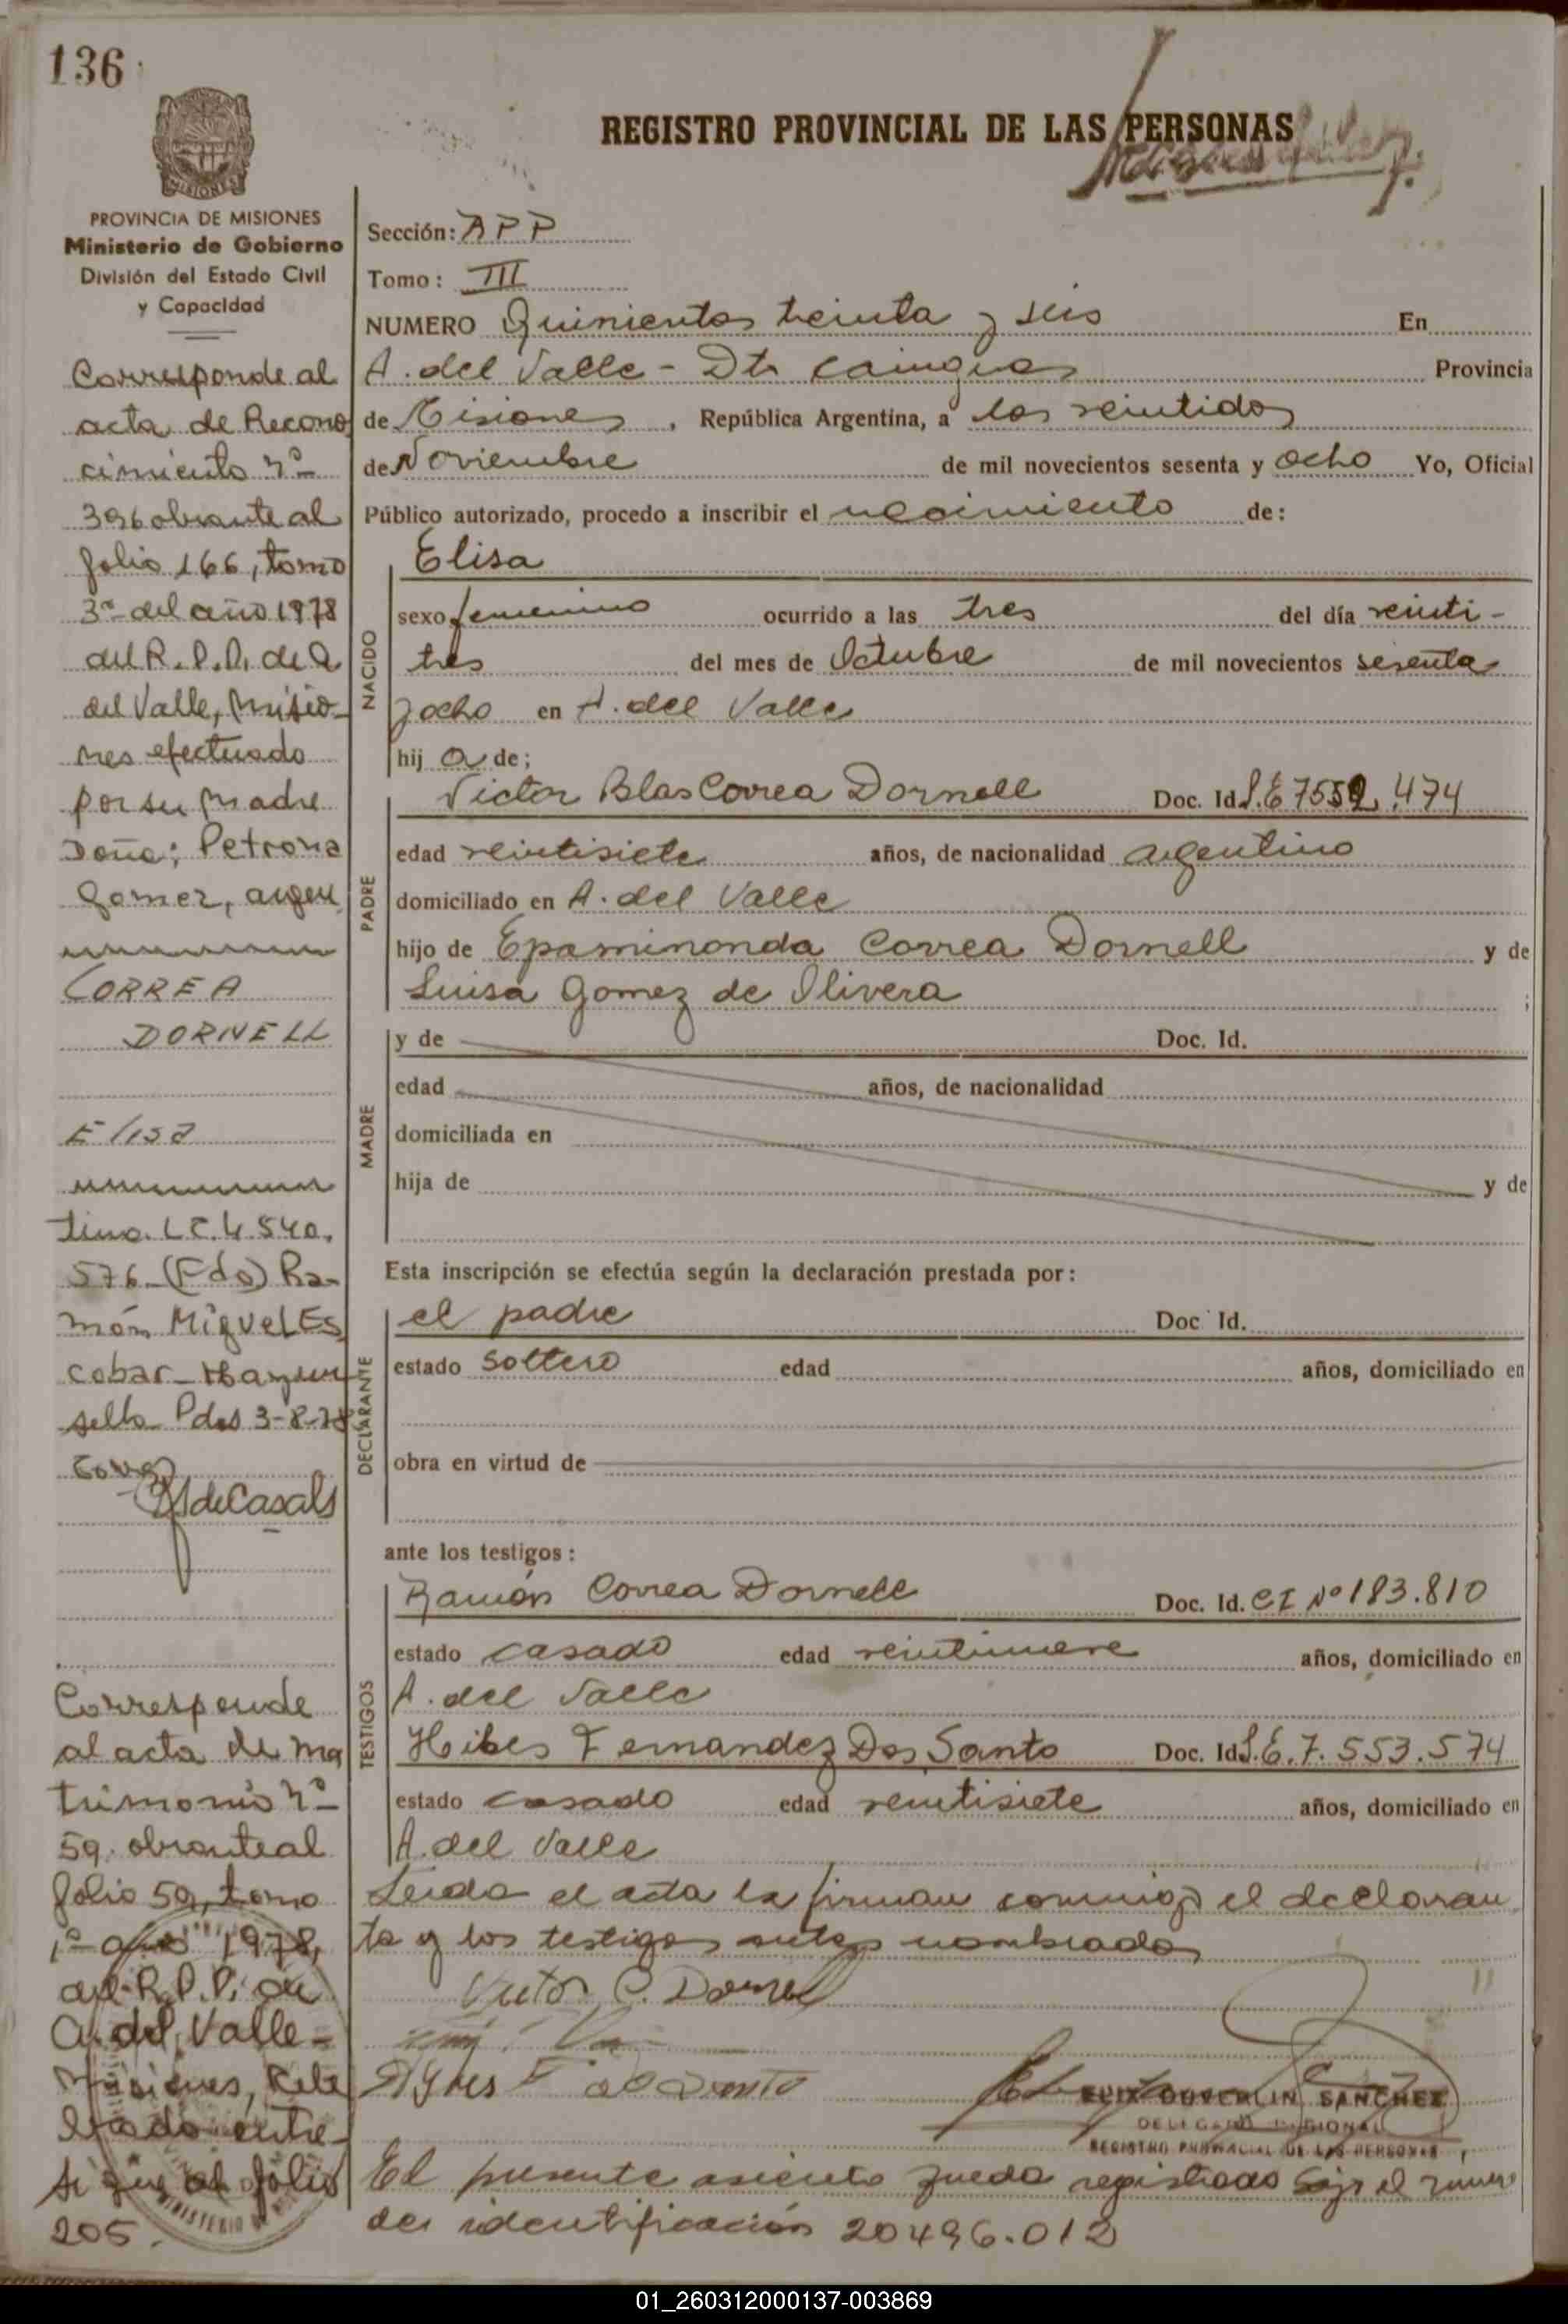 136
REGISTRO PROVINCIAL DE LAS PERSONAS
MISIONES
PROVINCIA DE MISIONES
Ministerio de Gobierno
División del Estado Civil
y Capacidad
Corresponde al
acta de Recono
cimiento nº
396 obrante al
folio 166, tomo
3º del año 1978
del R.P.P. de A.
del Valle, Misio-
nes efectuado
por su Madre
Doña: Petrona
Gomez, argen
CORREA
DORNELL
Elisa
tina. L.C. 4.540.
576 (Fdo) Ra-
món Miguel Es
cobar - Hay un
sello Pdas 3-8-78
de Casals
Corresponde
al acta de ma
trimonio nº
59 obrante al
folio 59, tomo
1º año 1978,
del R.P.P. de
A. del Valle-
Misiones, Cele
brado entre-
sigue al folio
205.
Sección: APP
Tomo: III
NUMERO Quinientos treinta y seis En
A. del Valle - Dto Cainguas Provincia
de Misiones, República Argentina, a los veintidos
de Noviembre de mil novecientos sesenta y ocho Yo, Oficial
Público autorizado, procedo a inscribir el nacimiento de:
NACIDO
Elisa
sexo femenino ocurrido a las tres del día veinti-
tres del mes de Octubre de mil novecientos sesenta
y ocho en A. del Valle
hij a de;
PADRE
Victor Blas Correa Dornell Doc. Id. L.E 7552.474
edad veintisiete años, de nacionalidad argentino
domiciliado en A. del Valle
hijo de Epaminonda Correa Dornell y de
Luisa Gomez de Olivera ;
MADRE
y de Doc. Id.
edad años, de nacionalidad
domiciliada en
hija de y de
Esta inscripción se efectúa según la declaración prestada por:
DECLARANTE
el padre Doc. Id.
estado soltero edad años, domiciliado en
obra en virtud de
ante los testigos:
TESTIGOS
Ramón Correa Dornell Doc. Id. CI Nº 183.810
estado casado edad veintinueve años, domiciliado en
A. del Valle
Hibes Fernandez Dos Santo Doc. Id. L.E. 7.553.574
estado casado edad veintisiete años, domiciliado en
A. del Valle
Leida el acta la firman conmigo el declaran
te y los testigos antes nombrados
Victor C. Dornell
ELIX DUVERLIN SANCHEZ
DELEGADO REGIONAL
REGISTRO PROVINCIAL DE LAS PERSONAS
El presente asiento queda registrado bajo el numero
de identificación 20496.012
01_260312000137-003869